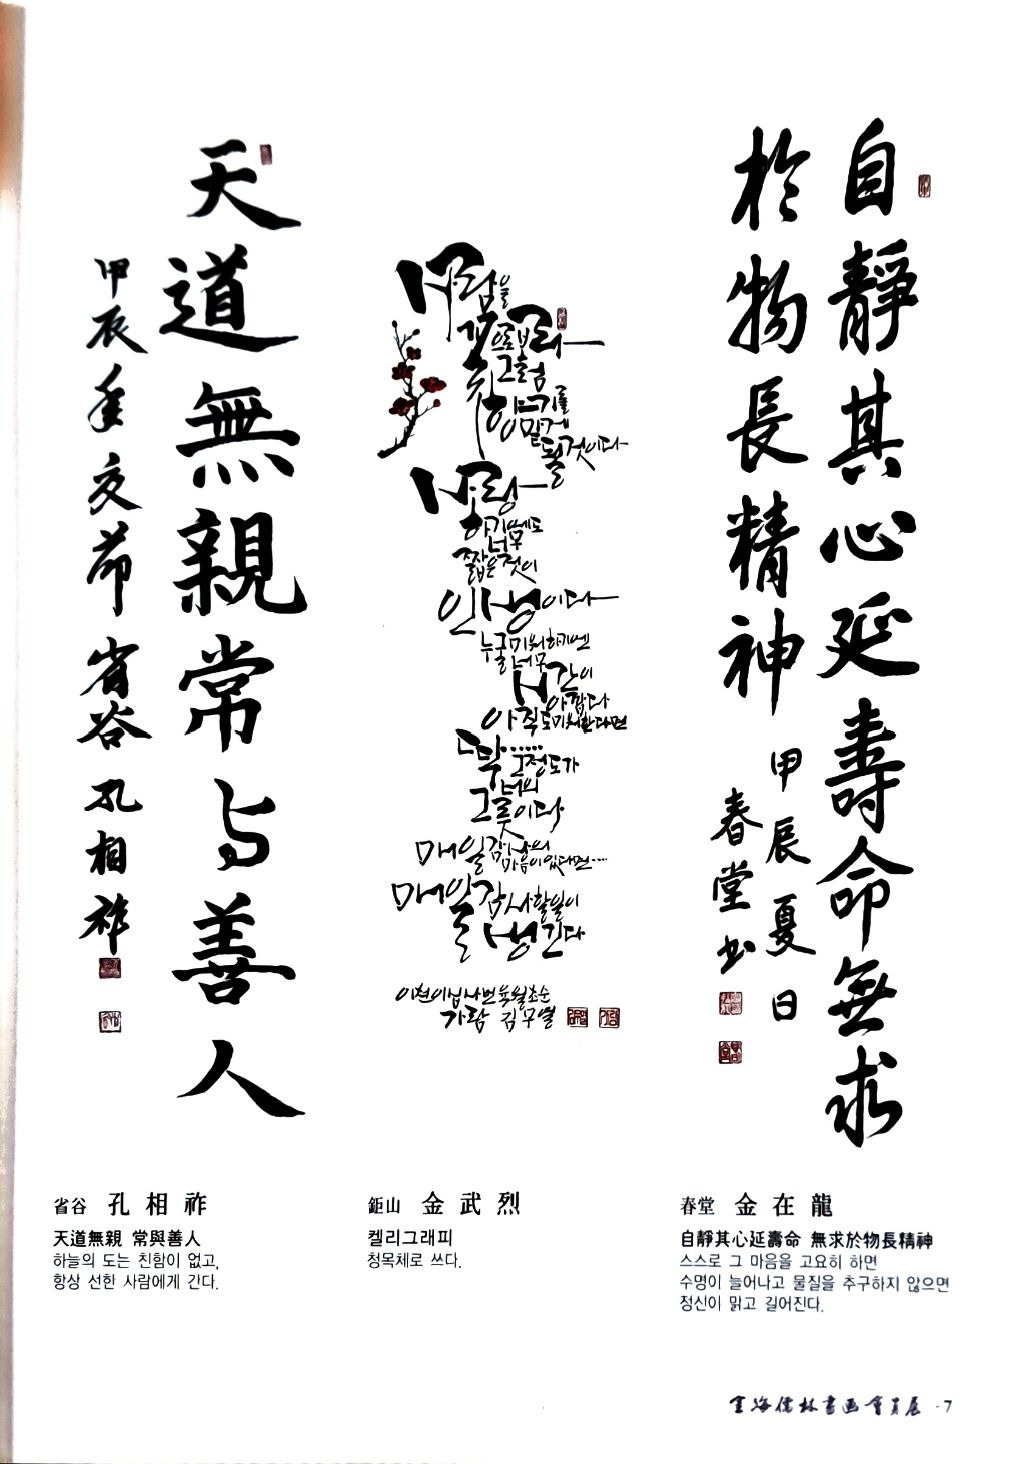 天道無親常与善人
甲辰年交節 省谷 孔相祚
사람을
꽃으로보라
그럼
향기를
맡게
될것이다
사랑
하기에도
너무
짧은것이
인생이다
누굴미워하기엔
너무
시간이
아깝다
아직도미워한다면
딱……
그정도가
너의
그릇이다
매일감사의
마음이있다면…
매일감사할일이
생긴다
이천이십사년육월초순
가람 김무열
自靜其心延壽命無求
於物長精神
甲辰夏日
春堂书
省谷 孔相祚
天道無親 常與善人
하늘의 도는 친함이 없고,
항상 선한 사람에게 간다.
鉅山 金武烈
켈리그래피
청목체로 쓰다.
春堂 金在龍
自靜其心延壽命 無求於物長精神
스스로 그 마음을 고요히 하면
수명이 늘어나고 물질을 추구하지 않으면
정신이 맑고 길어진다.
金海儒林書画會員展 · 7